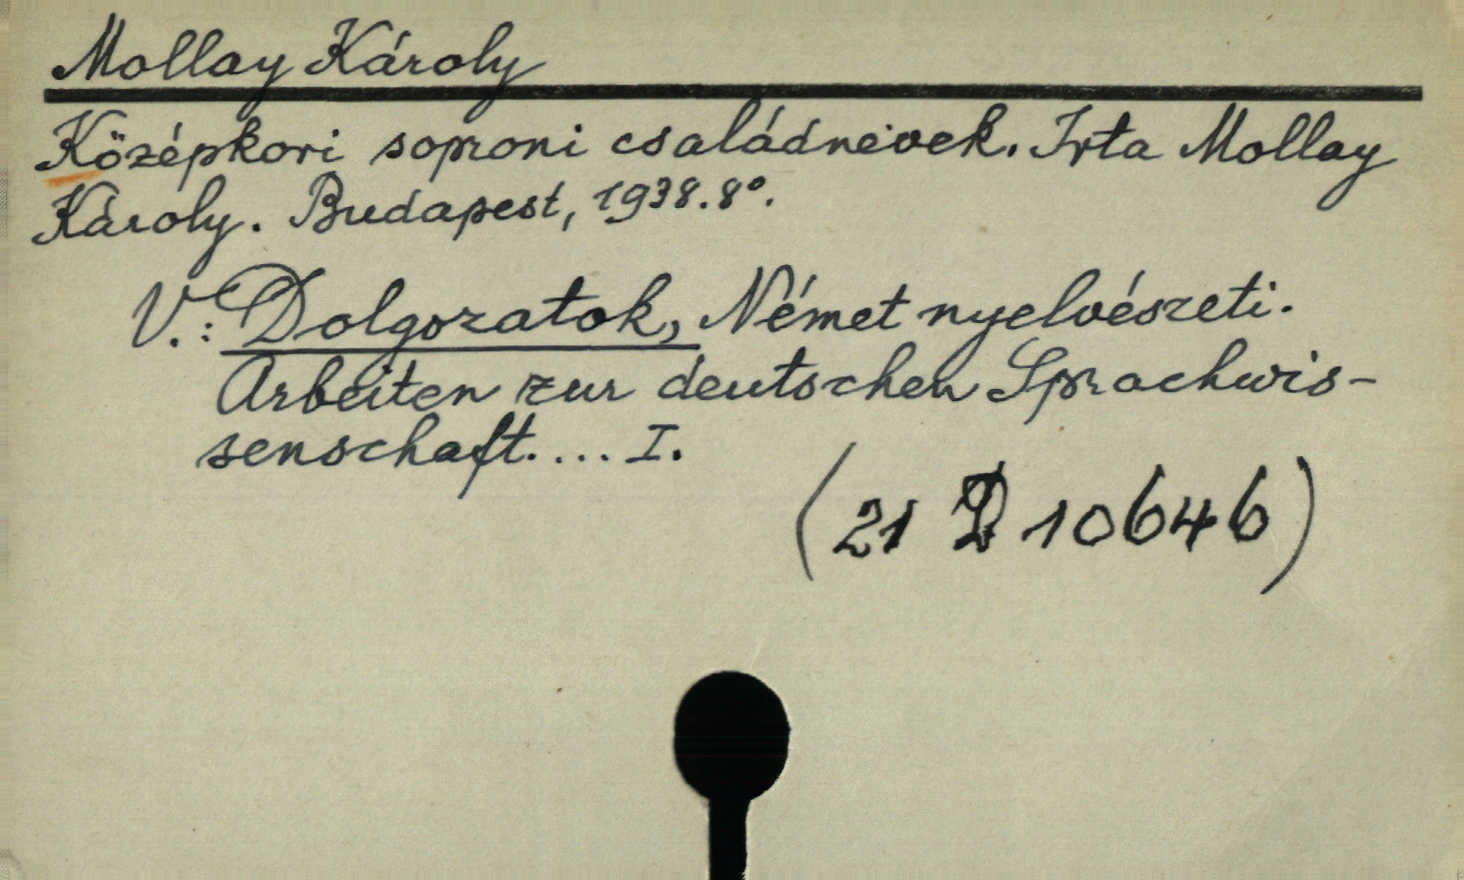 Mollay Károly
Középkori soproni családnevek. Irta Mollay
Károly. Budapest, 1938. 8°.
V.: Dolgozatok, Német nyelvészeti.
Arbeiten zur deutschen Sprachwis-
senschaft.... I.
(21 D 10646)